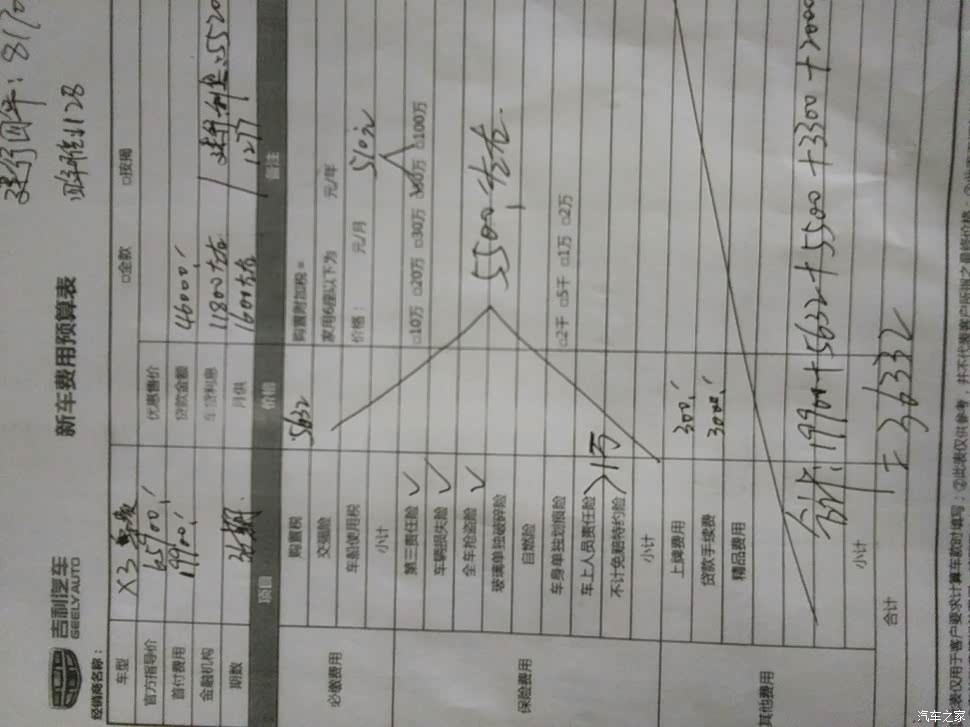 吉利汽车
GEELY AUTO
新车费用预算表
建行四年:
128
经销商名称:
□全款 □按揭
车型 X3
官方指导价 65900 优惠售价
首付费用 19900 贷款金额 46000
金融机构 车贷利息 11800左右 建行利息:5520
期数 36期 月供 1600左右 1277
项目 价格 备注
必缴费用
购置税 5632 购置附加税=
交强险 家用6座以下为 元/年
车船使用税 价格: 元/月 510元
小计
保险费用
第三责任险 ✓ □10万 □20万 □30万 □50万 □100万
车辆损失险 ✓
全车抢盗险 ✓
玻璃单独破碎险 5500左右
自燃险
车身单独划痕险 □2千 □5千 □1万 □2万
车上人员责任险 >1万
不计免赔特约险
小计
其他费用
上牌费用 300
贷款手续费 3000
精品费用
合计:19900+5632+5500+3300+2000
小计 =36332
合计
表仅用于客户要求计算车款时填写;②此表仅供参考,并不代表客户所指之最终价格;
汽车之家